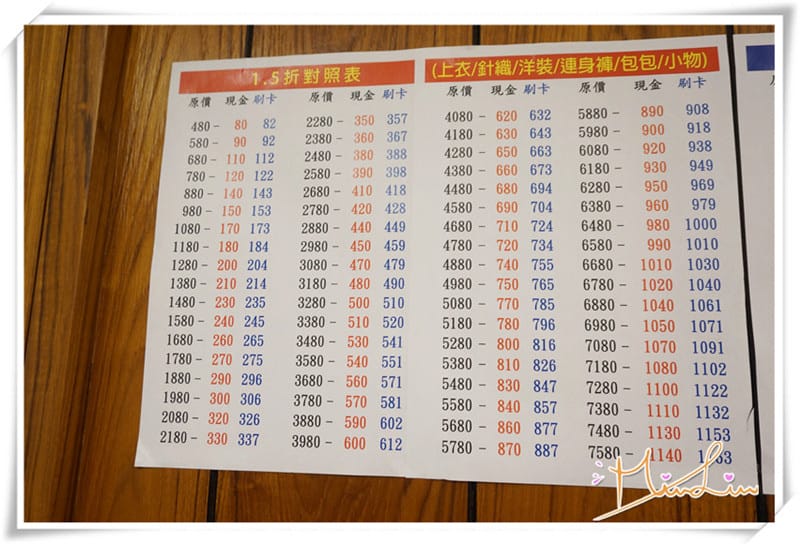 1.5折對照表
原價 現金 刷卡 原價 現金 刷卡
480- 80 82 2280- 350 357
580- 90 92 2380- 360 367
680- 110 112 2480- 380 388
780- 120 122 2580- 390 398
880- 140 143 2680- 410 418
980- 150 153 2780- 420 428
1080- 170 173 2880- 440 449
1180- 180 184 2980- 450 459
1280- 200 204 3080- 470 479
1380- 210 214 3180- 480 490
1480- 230 235 3280- 500 510
1580- 240 245 3380- 510 520
1680- 260 265 3480- 530 541
1780- 270 275 3580- 540 551
1880- 290 296 3680- 560 571
1980- 300 306 3780- 570 581
2080- 320 326 3880- 590 602
2180- 330 337 3980- 600 612
(上衣/針織/洋裝/連身褲/包包/小物)
原價 現金 刷卡 原價 現金 刷卡
4080- 620 632 5880- 890 908
4180- 630 643 5980- 900 918
4280- 650 663 6080- 920 938
4380- 660 673 6180- 930 949
4480- 680 694 6280- 950 969
4580- 690 704 6380- 960 979
4680- 710 724 6480- 980 1000
4780- 720 734 6580- 990 1010
4880- 740 755 6680- 1010 1030
4980- 750 765 6780- 1020 1040
5080- 770 785 6880- 1040 1061
5180- 780 796 6980- 1050 1071
5280- 800 816 7080- 1070 1091
5380- 810 826 7180- 1080 1102
5480- 830 847 7280- 1100 1122
5580- 840 857 7380- 1110 1132
5680- 860 877 7480- 1130 1153
5780- 870 887 7580- 1140